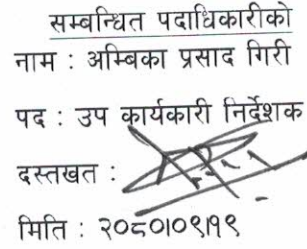 सम्बन्धित पदाधिकारीको
नाम : अम्बिका प्रसाद गिरी
पद : उप कार्यकारी निर्देशक
दस्तखत :
मिति : २०८०।०९।१९